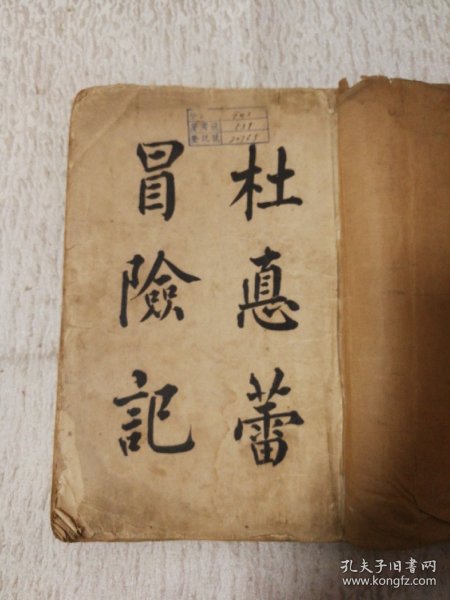 杜惪蕾
冒險記
孔夫子旧书网
www.kongfz.com